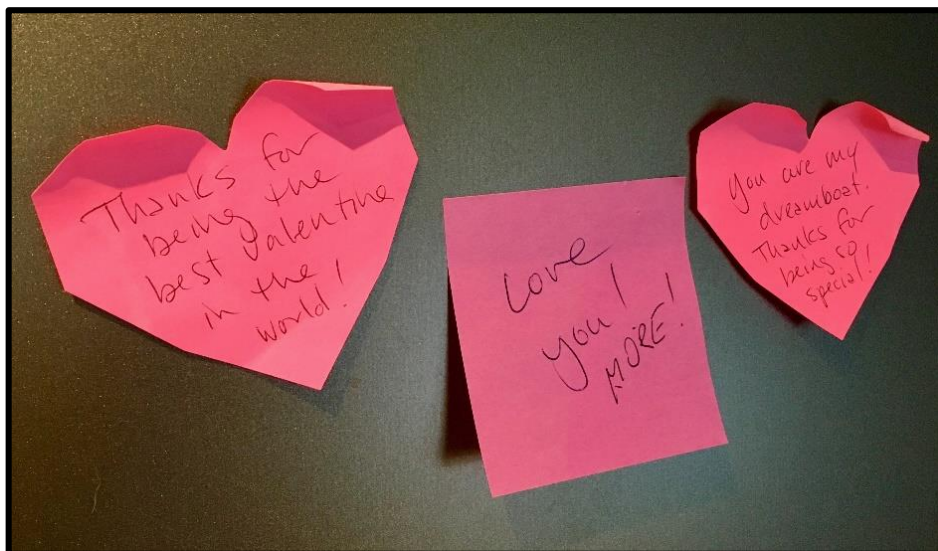 Thanks for
being the
best Valentine
in the
world!
Love
you!
MORE!
You are my
dreamboat.
Thanks for
being so
special!